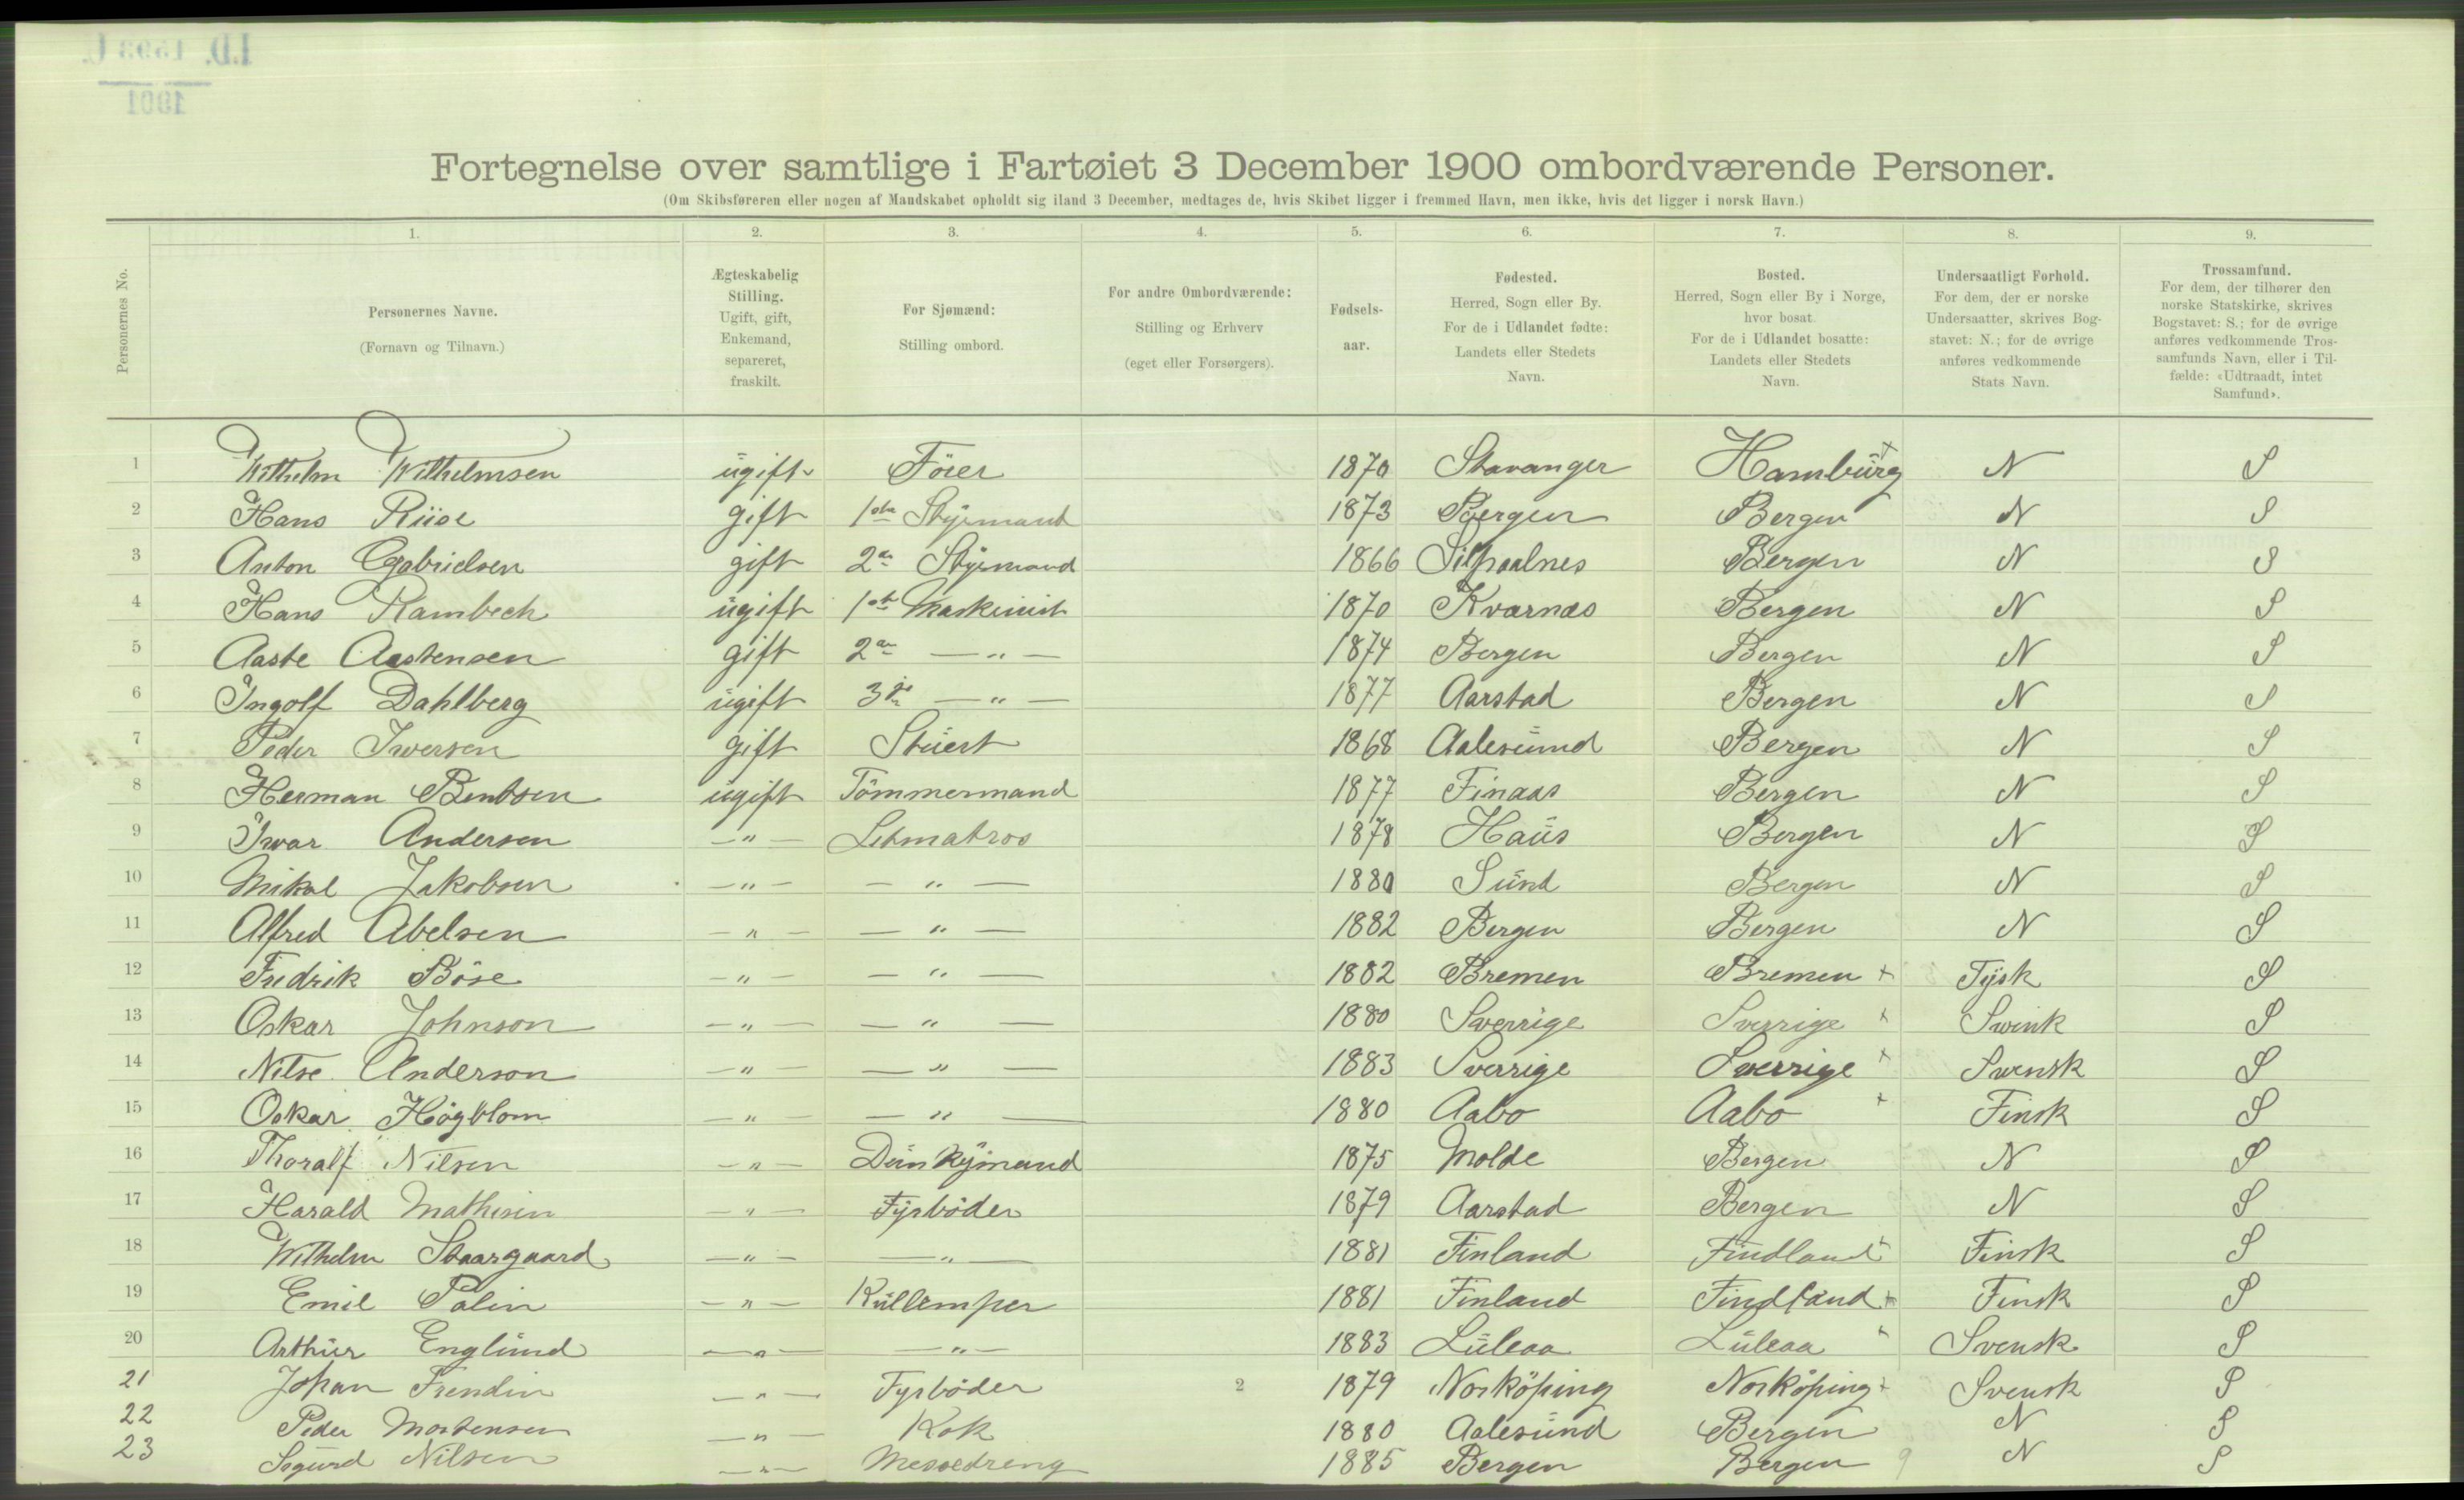 I.D. 1393 C.
1901
Fortegnelse over samtlige i Fartøiet 3 December 1900 ombordværende Personer.
(Om Skibsføreren eller nogen af Mandskabet opholdt sig iland 3 December, medtages de, hvis Skibet ligger i fremmed Havn, men ikke, hvis det ligger i norsk Havn.)
Personernes No.
1. 2. 3. 4. 5. 6. 7. 8. 9.
Personernes Navne.
(Fornavn og Tilnavn.)
Ægteskabelig
Stilling.
Ugift, gift,
Enkemand,
separeret,
fraskilt.
For Sjømænd:
Stilling ombord.
For andre Ombordværende:
Stilling og Erhverv
(eget eller Forsørgers).
Fødsels-
aar.
Fødested.
Herred, Sogn eller By.
For de i Udlandet fødte:
Landets eller Stedets
Navn.
Bosted.
Herred, Sogn eller By i Norge,
hvor bosat.
For de i Udlandet bosatte:
Landets eller Stedets
Navn.
Undersaatligt Forhold.
For dem, der er norske
Undersaatter, skrives Bog-
stavet: N.; for de øvrige
anføres vedkommende
Stats Navn.
Trossamfund.
For dem, der tilhører den
norske Statskirke, skrives
Bogstavet: S.; for de øvrige
anføres vedkommende Tros-
samfunds Navn, eller i Til-
fælde: «Udtraadt, intet
Samfund».
1 Wilhelm Wilhelmsen ugift Förer 1870 Stavanger Hamburg + N S
2 Hans Riise gift 1ste Styrmand 1873 Bergen Bergen N S
3 Anton Gabrielsen gift 2en Styrmand 1866 Bergen N S
4 Hans Rambech ugift 1ste Maskinist 1870 Kvarnæs Bergen N S
5 Aaste Aastensen gift 2en — " — 1874 Bergen Bergen N S
6 Ingolf Dahlberg ugift 3die — " — 1877 Aarstad Bergen N S
7 Peder Iversen gift Stuert 1868 Aalesund Bergen N S
8 Herman Bentsen ugift Tömmermand 1877 Finaas Bergen N S
9 Ivar Andersen — " — Letmatros 1878 Haus Bergen N S
10 Mikal Jakobsen — " — — " — 1880 Sund Bergen N S
11 Alfred Abelsen — " — — " — 1882 Bergen Bergen N S
12 Fredrik Böse — " — — " — 1882 Bremen Bremen + Tysk S
13 Oskar Johnson — " — — " — 1880 Sverrige Sverrige + Svensk S
14 Nilse Anderson — " — — " — 1883 Sverrige Sverrige + Svensk S
15 Oskar Högblom — " — — " — 1880 Aabo Aabo + Finsk S
16 Thoralf Nilsen — " — Dunkymand 1875 Molde Bergen N S
17 Harald Mathisen — " — Fyrböder 1879 Aarstad Bergen N S
18 Wilhelm Staargaard — " — — " — 1881 Finland Findland + Finsk S
19 Emil Palin — " — Kullemper 1881 Finland Findland + Finsk S
20 Arthur Englund — " — — " — 1883 Luleaa Luleaa + Svensk S
21 Johan Frendin — " — Fyrböder 2 1879 Norköping Norköping + Svensk S
22 Peder Mortensen — " — Kok 1880 Aalesund Bergen N S
23 Sigurd Nilsen — " — Messedreng 1885 Bergen Bergen 9 N S